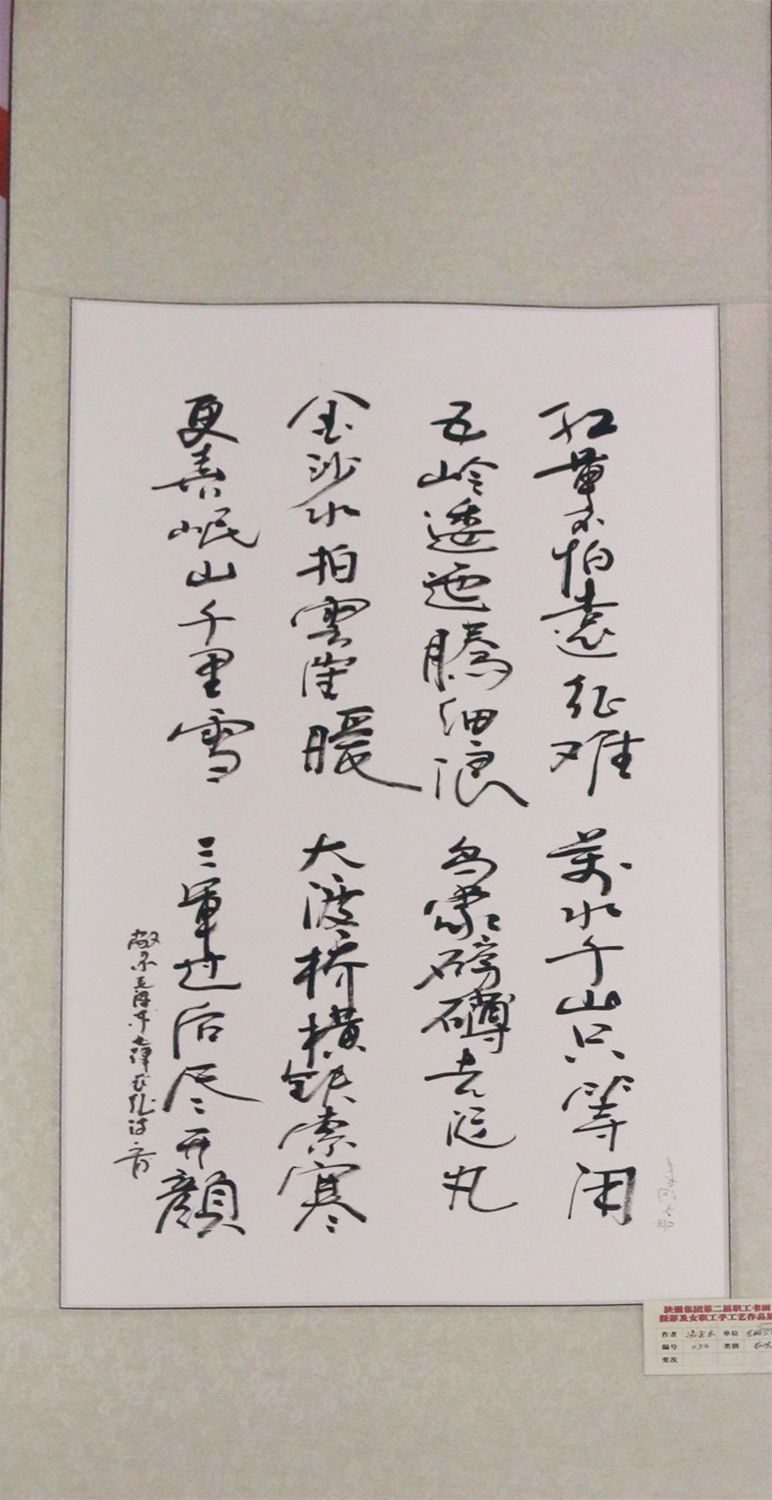 红军不怕远征难 万水千山只等闲
五岭逶迤腾细浪 乌蒙磅礴走泥丸
金沙水拍云崖暖 大渡桥横铁索寒
更喜岷山千里雪 三军过后尽开颜
毛泽东 诗一首
铁钢集团第二届职工书画
摄影及女职工手工艺作品展
作者 单位
编号 034 类别
奖次